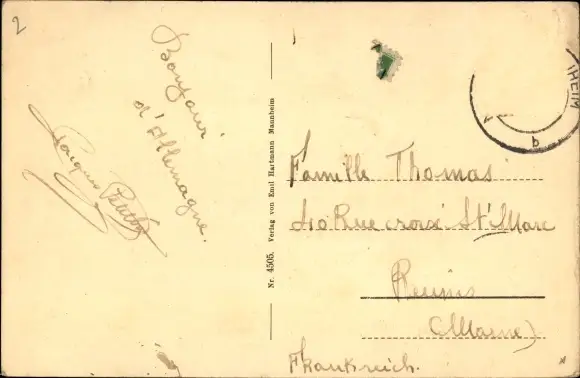 2
Bonjour
d'Allemagne.
Jacques
Nr. 4505. Verlag von Emil Hartmann Mannheim
HEIM
d
Famille Thomas
Rue croix St Marc
Reims
(Marne)
Frankreich.